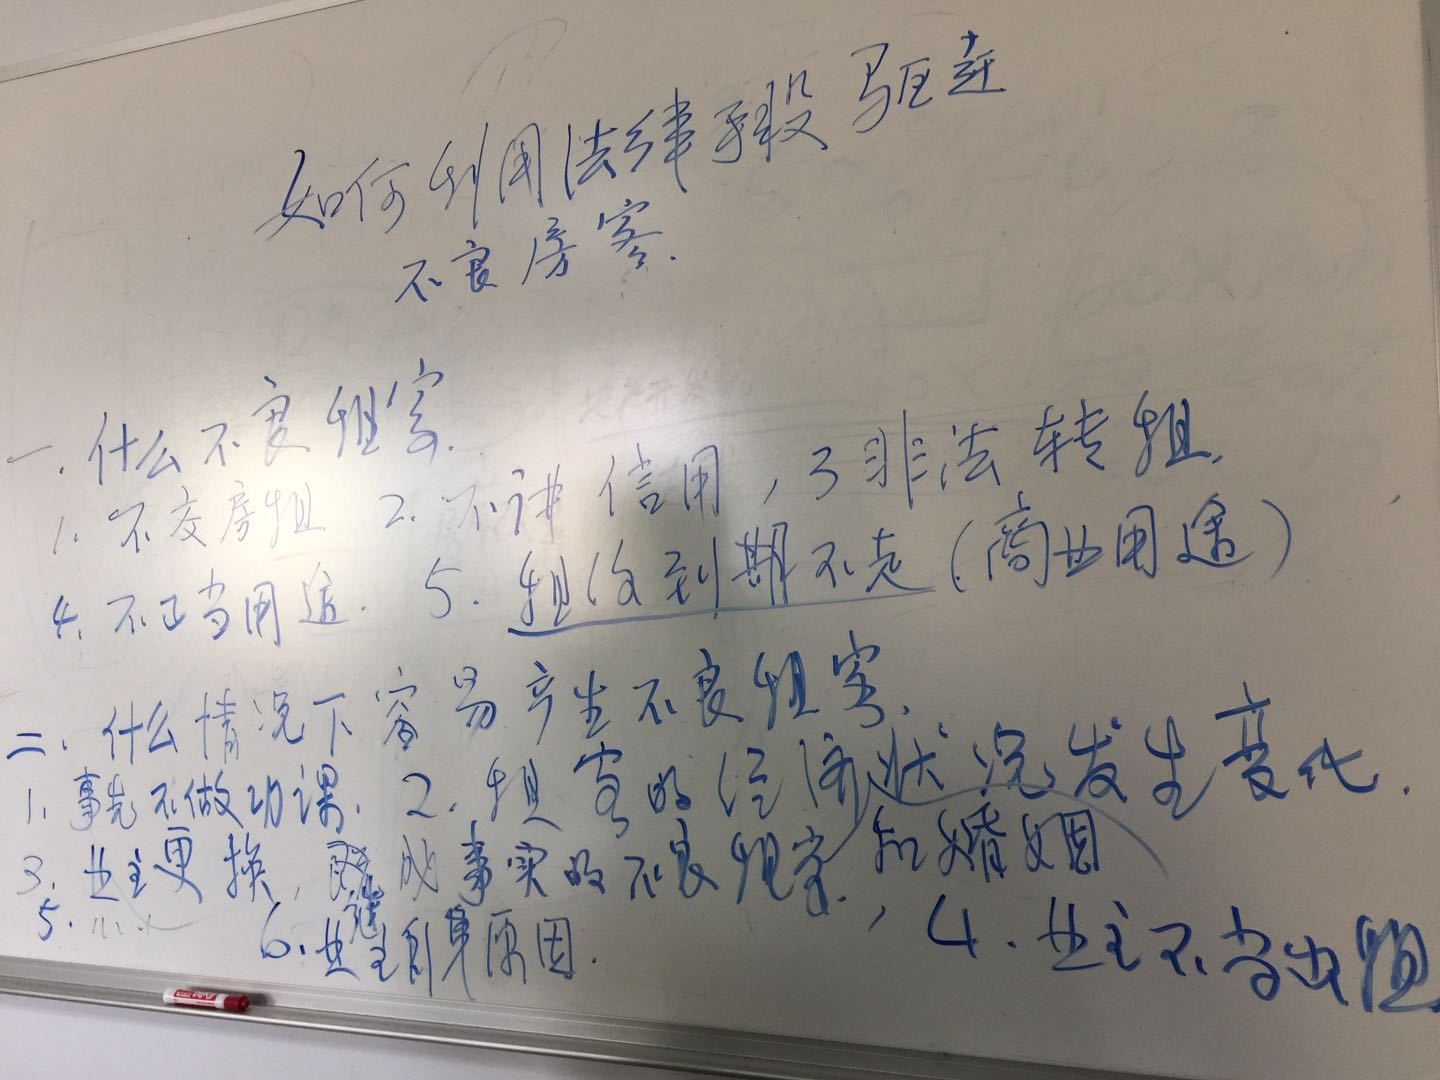 如何利用法律手段驱赶
不良房客.
一.什么不良租客.
1.不交房租 2.不讲信用,3非法转租.
4.不正当用途. 5.租约到期不走(商业用途)
二.什么情况下容易产生不良租客.
1.事先不做功课. 2.租客的经济状况发生变化.
和婚姻
3.业主更换,造成事实的不良租客., 4.业主不当出租
5. 6.业主自身原因.